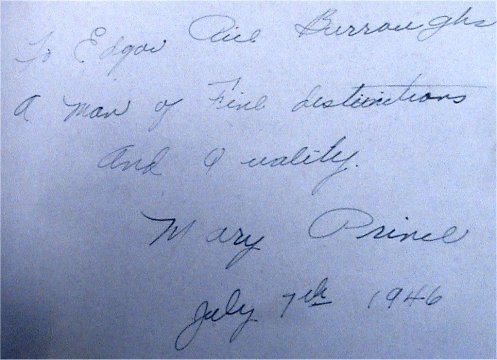 To Edgar Rice Burroughs
A man of Fine distinctions
And Quality.
Mary Prince
July 7th 1946